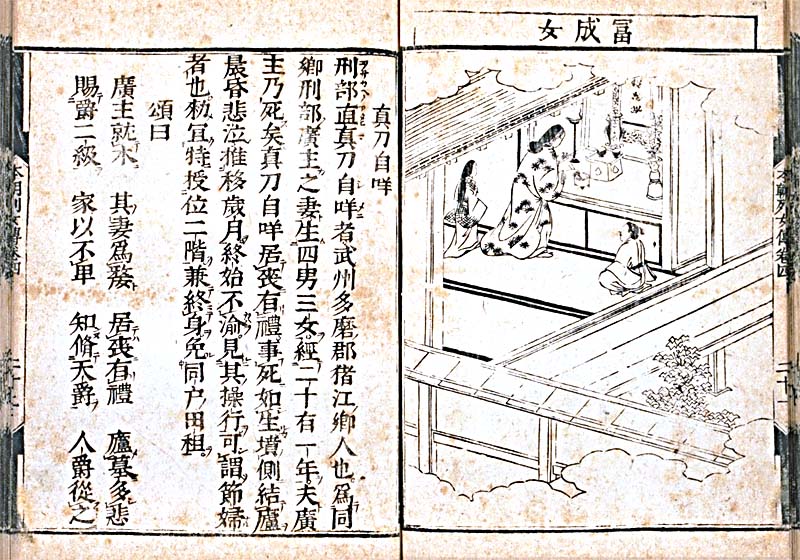 冨成女
本朝列女傳卷四
真刀自咩
刑部直真刀自咩者武州多磨郡猪江鄉人也爲同
鄉刑部廣主之妻生四男三女經二十有一年夫廣
主乃死矣真刀自咩居丧有禮事死如生墳側結廬
晨昏悲泣推移歲月終始不渝見其操行可謂節婦
者也勅冝特授位二階兼終身免同户田租
頌曰
廣主就木 其妻爲嫠 居丧有禮 廬墓多悲
賜爵二級 家以不卑 知脩天爵 人爵從之
本朝列女傳卷四